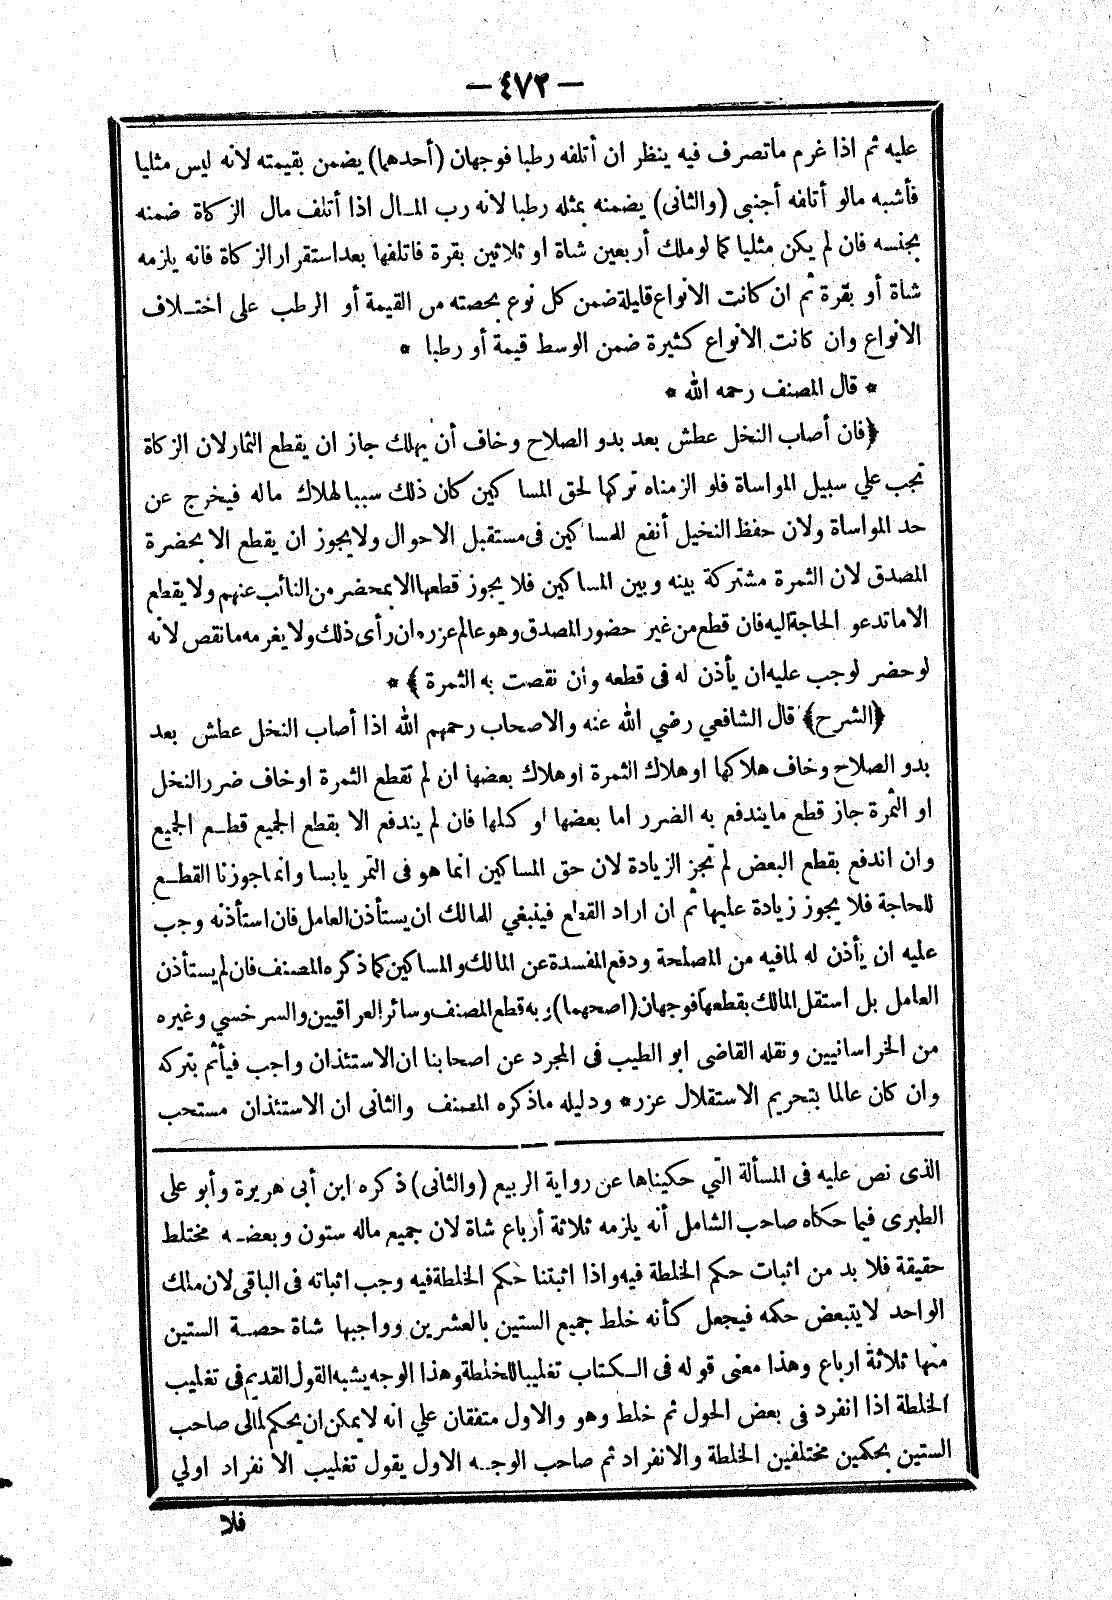 — ٤٧٢ —
عليه ثم اذا غرم ماتصرف فيه ينظر ان أتلفه رطبا فوجهان (أحدهما) يضمن بقيمته لانه ليس مثليا
فأشبه مالو أتلفه أجنبى (والثانى) يضمنه بمثله رطبا لانه رب المـال اذا أتلف مال الزكاة ضمنه
بجنسه فان لم يكن مثليا كما لو ملك أربعين شاة او ثلاثين بقرة فاتلفها بعد استقرار الزكاة فانه يلزمه
شاة أو بقرة ثم ان كانت الانواع قليلة ضمن كل نوع بحصته من القيمة أو الرطب على اختـلاف
الانواع وان كانت الانواع كثيرة ضمن الوسط قيمة أو رطبا *
* قال المصنف رحمه الله *
﴿فان أصاب النخل عطش بعد بدو الصلاح وخاف أن يهلك جاز ان يقطع الثمار لان الزكاة
تجب علي سبيل المواساة فلو الزمناه تركها لحق المساكين كان ذلك سببا لهلاك ماله فيخرج عن
حد المواساة ولان حفظ النخيل أنفع للمساكين فى مستقبل الاحوال ولايجوز ان يقطع الا بحضرة
المصدق لان الثمرة مشتركة بينه وبين المساكين فلا يجوز قطعها الا بمحضر من النائب عنهم ولا يقطع
الا ماتدعو الحاجة اليه فان قطع من غير حضور المصدق وهو عالم عزره ان رأى ذلك ولا يغرمه ما نقص لانه
لو حضر لوجب عليه ان يأذن له فى قطعه وان نقصت به الثمرة﴾ *
﴿الشرح﴾ قال الشافعي رضي الله عنه والاصحاب رحمهم الله اذا أصاب النخل عطش بعد
بدو الصلاح وخاف هلاكها او هلاك الثمرة او هلاك بعضها ان لم تقطع الثمرة او خاف ضرر النخل
او الثمرة جاز قطع مايندفع به الضرر اما بعضها او كلها فان لم يندفع الا بقطع الجميع قطـع الجميع
وان اندفع بقطع البعض لم تجز الزيادة لان حق المساكين انما هو فى التمر يابسا وانما جوزنا القطـع
للحاجة فلا يجوز زيادة عليها ثم ان اراد القطع فينبغي للمالك ان يستأذن العامل فان استأذنه وجب
عليه ان يأذن له لمافيه من المصلحة ودفع المفسدة عن المالك والمساكين كما ذكره المصنف فان لم يستأذن
العامل بل استقل المالك بقطعها فوجهان (اصحهما) وبه قطع المصنف وسائر العراقيين والسرخسي وغيره
من الخراسانيين ونقله القاضى ابو الطيب فى المجرد عن اصحابنا ان الاستئذان واجب فيأثم بتركه
وان كان عالما بتحريم الاستقلال عزر* ودليله ماذكره المصنف والثانى ان الاستئذان مستحب
الذى نص عليه فى المسألة التي حكيناها عن رواية الربيع (والثانى) ذكره ابن أبى هريرة وأبو على
الطبرى فيما حكاه صاحب الشامل أنه يلزمه ثلاثة أرباع شاة لان جميع ماله ستون وبعضـه مختلط
حقيقة فلا بد من اثبات حكم الخلطة فيه واذا اثبتنا حكم الخلطة فيه وجب اثباته فى الباقى لان ملك
الواحد لايتبعض حكمه فيجعل كأنه خلط جميع الستين بالعشرين وواجبها شاة حصـة الستين
منها ثلاثة ارباع وهذا معنى قوله فى الـكتاب تغليبا للخلطة وهذا الوجه يشبه القول القديم فى تغليب
الخلطة اذا انفرد فى بعض الحول ثم خلط وهو والاول متفقان علي انه لا يمكن ان يحكم لمالى صاحب
الستين بحكمين مختلفين الخلطة والانفراد ثم صاحب الوجـه الاول يقول تغليب الانفراد اولي
فلا